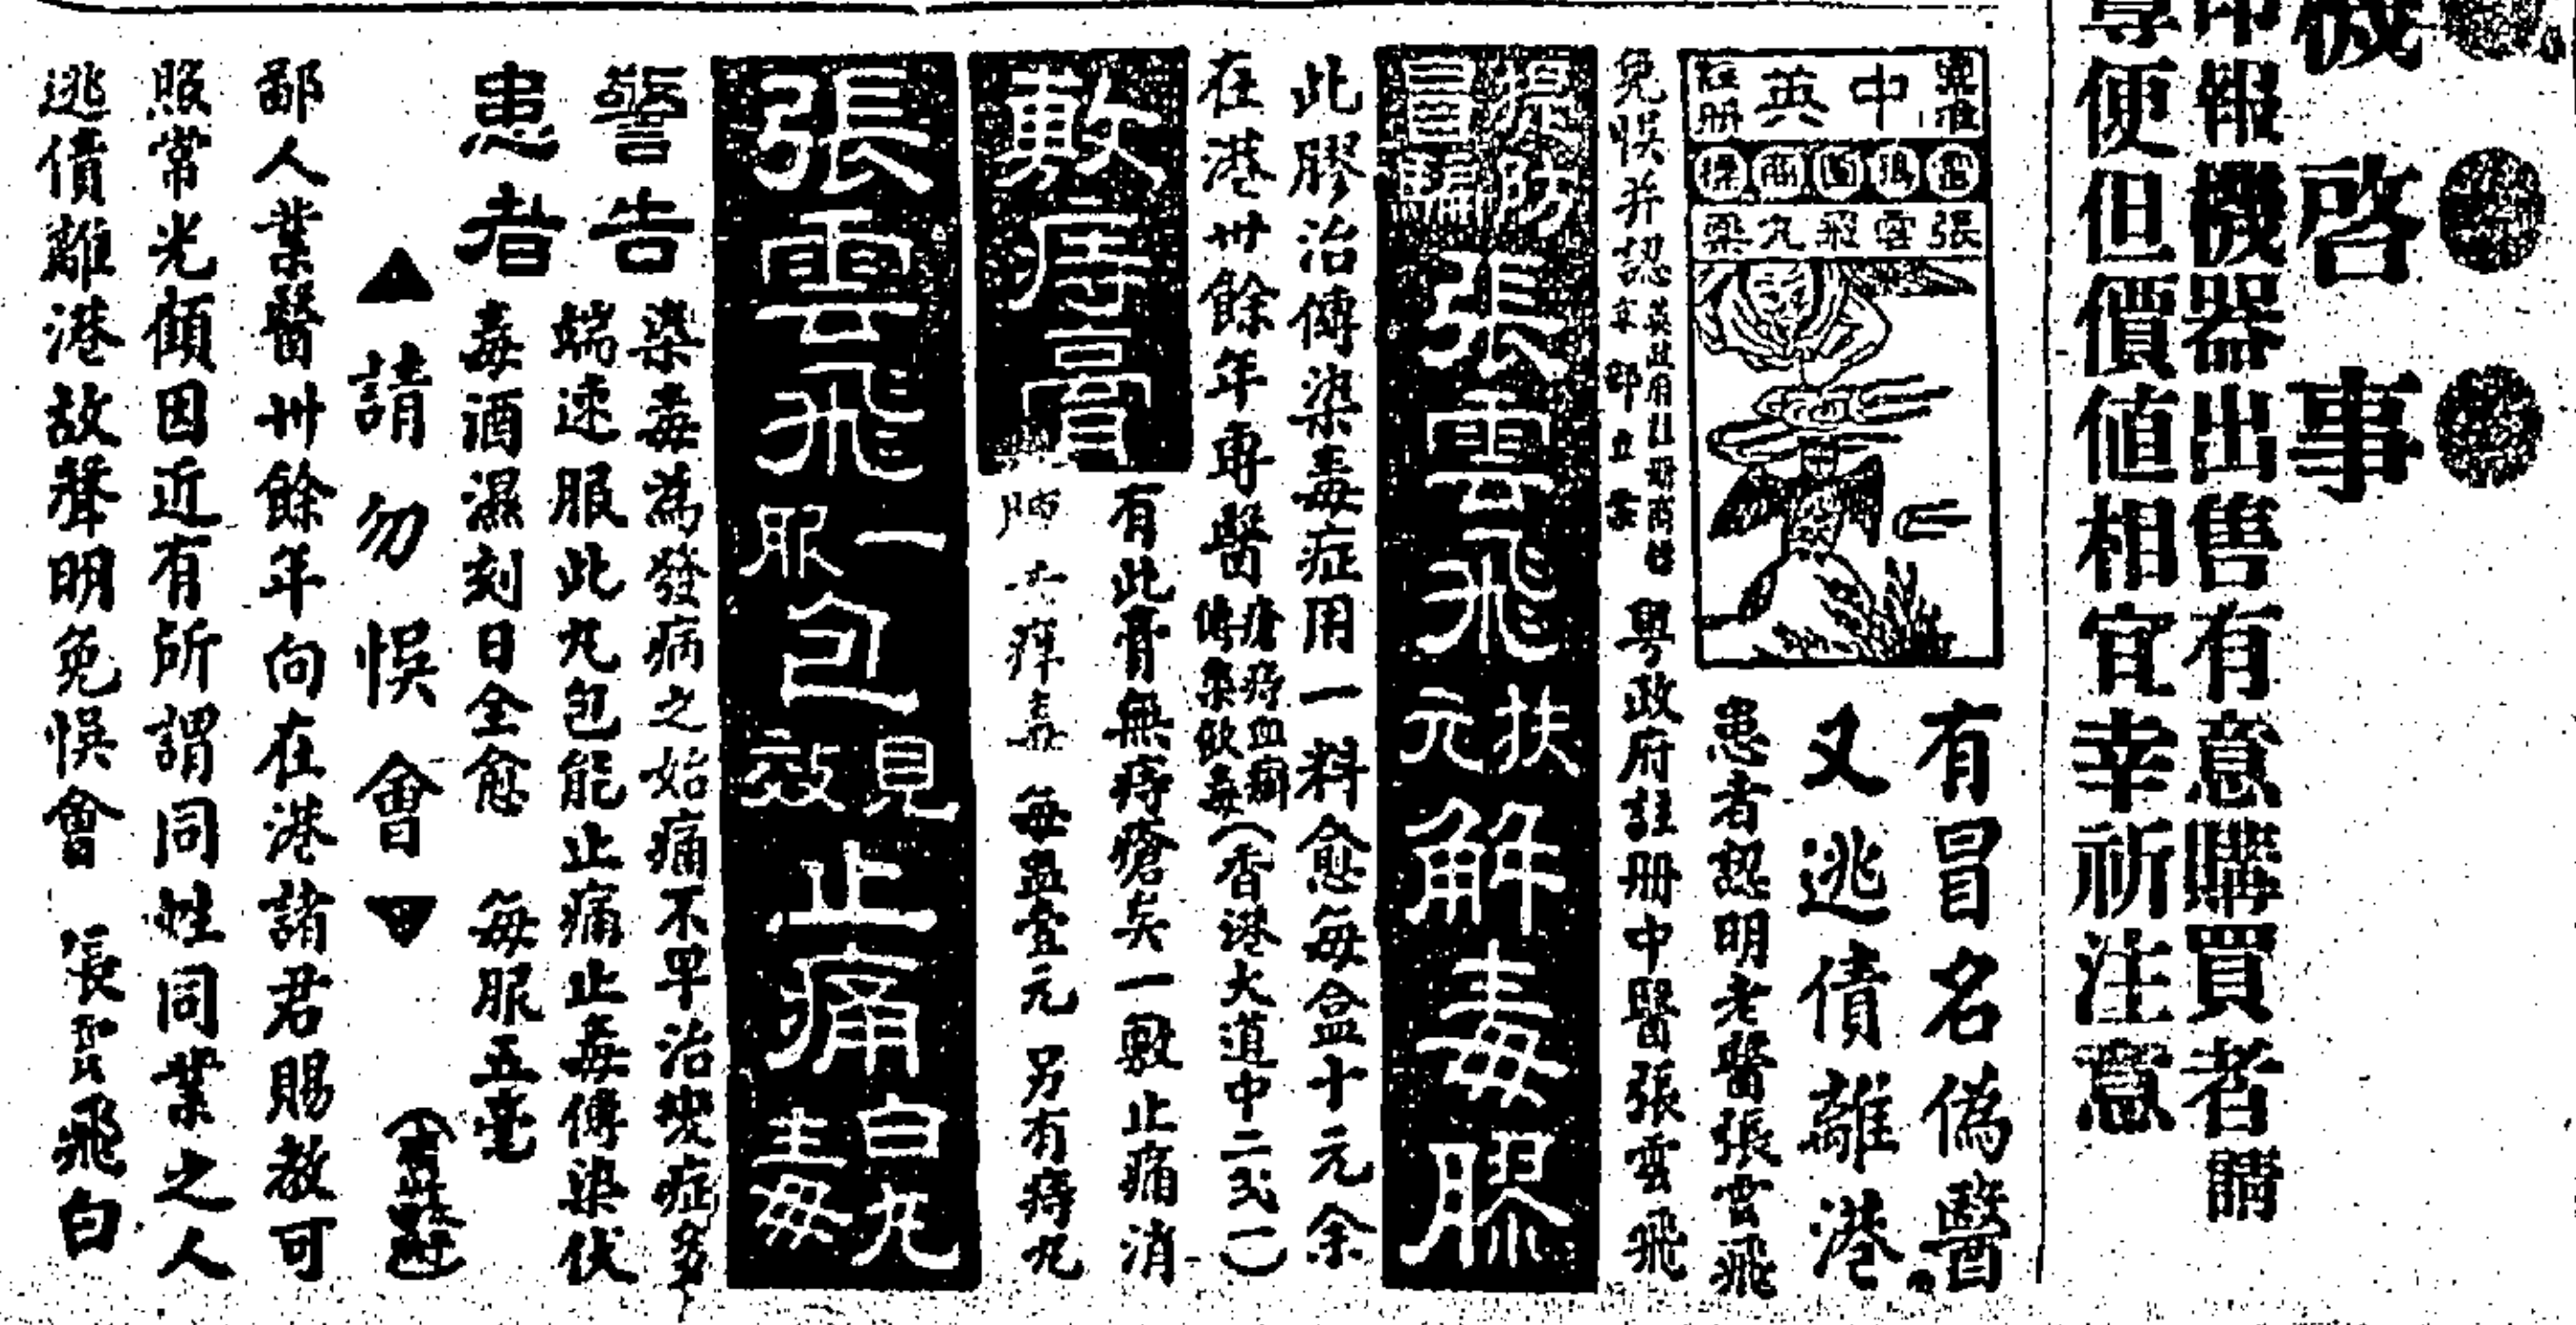 機啓事
印報機器出售有意購買者請
尊便但價值相宜幸祈注意
中英
註册
張雲飛丸藥
有冒名偽醫
又逃債離港
患者認明老醫張雲飛
粵政府註册中醫張雲飛
免悞并認
提防冒騙
張雲飛扶元解毒膠
此膠治傳染毒症用一料愈每盒十元余
在港卅餘年專醫瘡痔血癬傳染𤶸毒(香港大道中二弍一)
敷痔膏
有此膏無痔瘡矣一敷止痛消
每盅壹元另有痔丸
張雲飛一服包見效止痛白毒丸
染毒為發病之始痛不早治變症多
端速服此丸包能止痛止毒傳染伏
毒酒濕刻日全愈 每服五毫
警告
患者
▲請勿悞會▼
鄙人業醫卅餘年向在港諸君賜教可
照常光顧因近有所謂同姓同業之人
逃債離港故聲明免悞會 張雲飛白